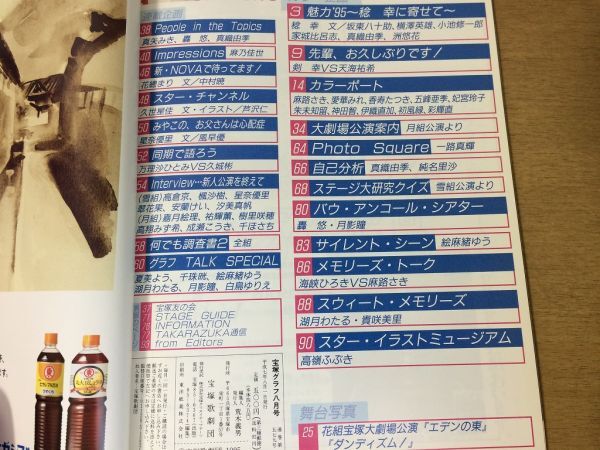 連載企画
38 People in the Topics
真矢みき、轟 悠、真織由季
40 Impressions 麻乃佳世
46 新・NOVAで待ってます!
花總まり 文/中村暁
48 スター・チャンネル
久世星佳 文・イラスト/芦沢仁
50 みやこの、お父さんは心配症
星奈優里 文/風早優
52 同期で語ろう
万理沙ひとみVS久城彬
54 Interview…新人公演を終えて
(雪組)高倉京、楓沙樹、星奈優里
翠花果、安蘭けい、汐美真帆
(月組)嘉月絵理、祐輝薫、樹里咲穂
高翔みず希、成瀬こうき、千ほさち
58 何でも調査書2 全組
60 グラフ TALK SPECIAL
夏美よう、千珠晄、絵麻緒ゆう
湖月わたる、月影瞳、白鳥ゆりえ
37 宝塚友の会
71 STAGE GUIDE
76 INFORMATION
72 TAKARAZUKA通信
93 from Editors
宝塚グラフ八月号
宝塚歌劇団
3 魅力'95~稔 幸に寄せて~
稔 幸 文/坂東八十助、横澤英雄、小池修一郎
家城比呂志、真織由季、洲悠花
9 先輩、お久しぶりです!
剣 幸VS天海祐希
14 カラーポート
麻路さき、愛華みれ、香寿たつき、五峰亜季、妃宮玲子
朱未知留、神田智、伊織直加、初風緑、彩輝直
34 大劇場公演案内 月組公演より
64 Photo Square 一路真輝
66 自己分析 真織由季、純名里沙
68 ステージ大研究クイズ 雪組公演より
80 バウ・アンコール・シアター
轟 悠・月影瞳
83 サイレント・シーン 絵麻緒ゆう
86 メモリーズ・トーク
海峡ひろきVS麻路さき
88 スウィート・メモリーズ
湖月わたる・貴咲美里
90 スター・イラストミュージアム
高嶺ふぶき
舞台写真
25 花組宝塚大劇場公演『エデンの東』
『ダンディズム!』